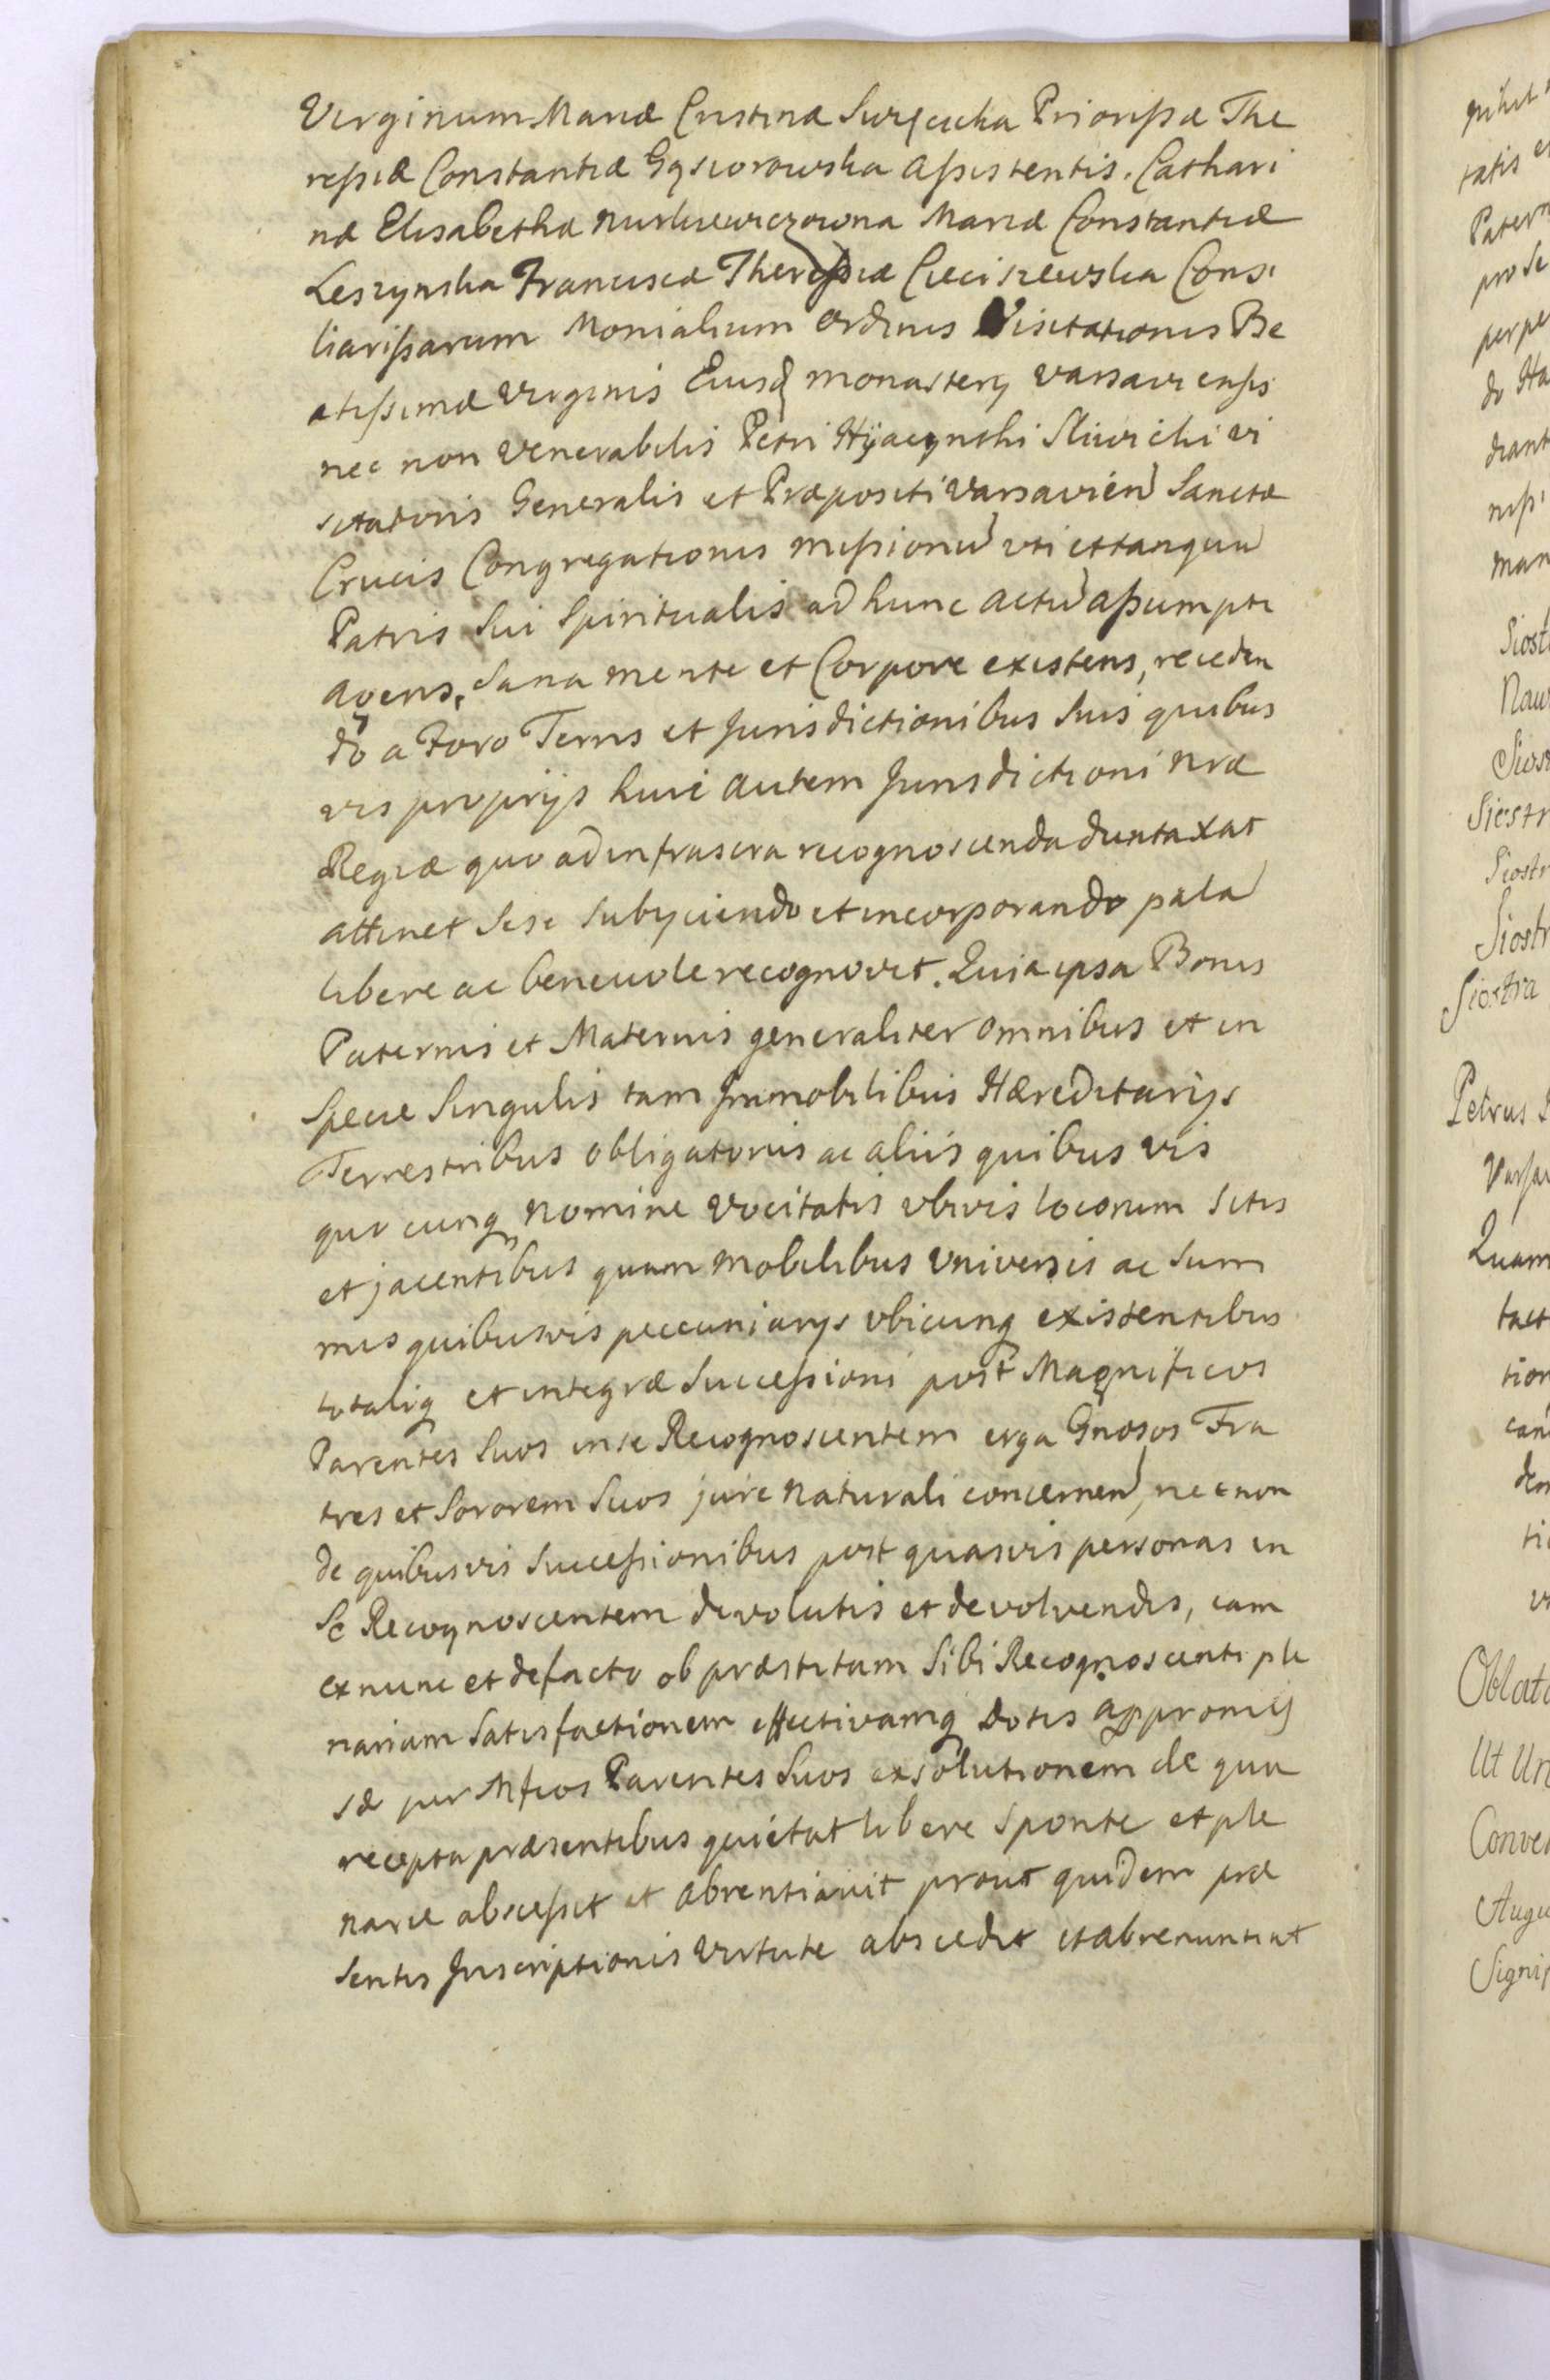 Virginum Mariæ Cristinæ Priorißæ The
reßiæ Constantiæ Gąsiorowska aßistentis. Cathari
næ Elisabethæ Mariæ Constantiæ
Leszynska Franciscæ Thereßiæ Cieciszewska Consi
liarißarum Monialium Ordinis Visitationis Be
atißimæ Virginis Eiusdq monastery Varsavienßis
nec non Venerabilis Petri Hÿacynthi Sliwicki vi
sitatoris Generalis et Præpositi Varsavien Sanctæ
Crucis Congregationis mißionu uti et tanqua
Patris Sui Spiritualis ad hunc actu aßumpti
agens, Sana mente et Corpore existens, receden
do a Foro Terris et Jurisdictionibus Suis quibus
vis proprijs huic autem Jurisdictioni nræ
Regiæ quo ad infrascra recognoscenda duntaxat
attinet Sese Subyciendo et incorporando pala
libere ac benevole recognovit. Quia ipsa Bonis
Paternis et Maternis generaliter omnibus et in
Specie Singulis tam Immobilibus Hæreditarijs
Terrestribus obligatorijs ac aliis quibus vis
quo cunq nomine vocitatis ubivis locorum sitis
et jacentibus quam mobilibus universis ac Sum
mis quibusvis peccuniarijs ubicunq existentibus
totaliq et integræ Succeßioni post Magnificos
Parentes Suos in se Recognoscentem erga Gnosos Fra
tres et Sororem Suos jure naturali concernen, nec non
de quibusvis Succeßionibus post quasvis personas in
Se Recognoscentem devolutis et devolvendis, iam
ex nunc et defacto ob præstitam Sibi Recognoscenti ple
nariam Satisfactionem effectivamq dotis appromis
sæ per Mficos Parentes Suos exsolutionem de qua
recepta præsentibus quietat libere sponte et ple
narie absceßit et abrentiavit prout quidem præ
sentis Inscriptionis virtute abscedit et abrenuntiat